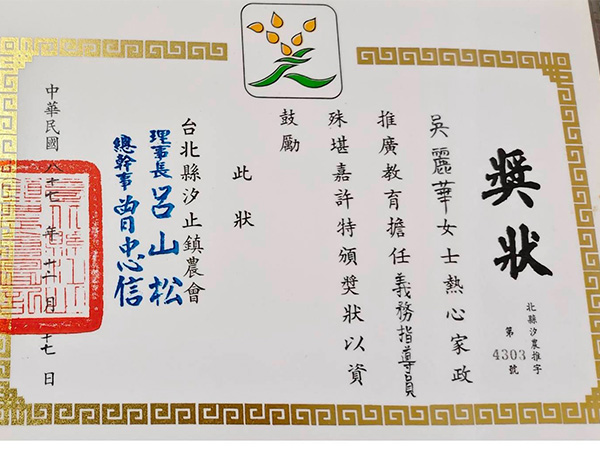 獎狀
北縣汐農推字
第4303號
吳麗華女士熱心家政
推廣教育擔任義務指導員
殊堪嘉許特頒獎狀以資
鼓勵
此狀
台北縣汐止鎮農會
理事長呂山松
總幹事曾忠信
中華民國八十七年十一月十七日